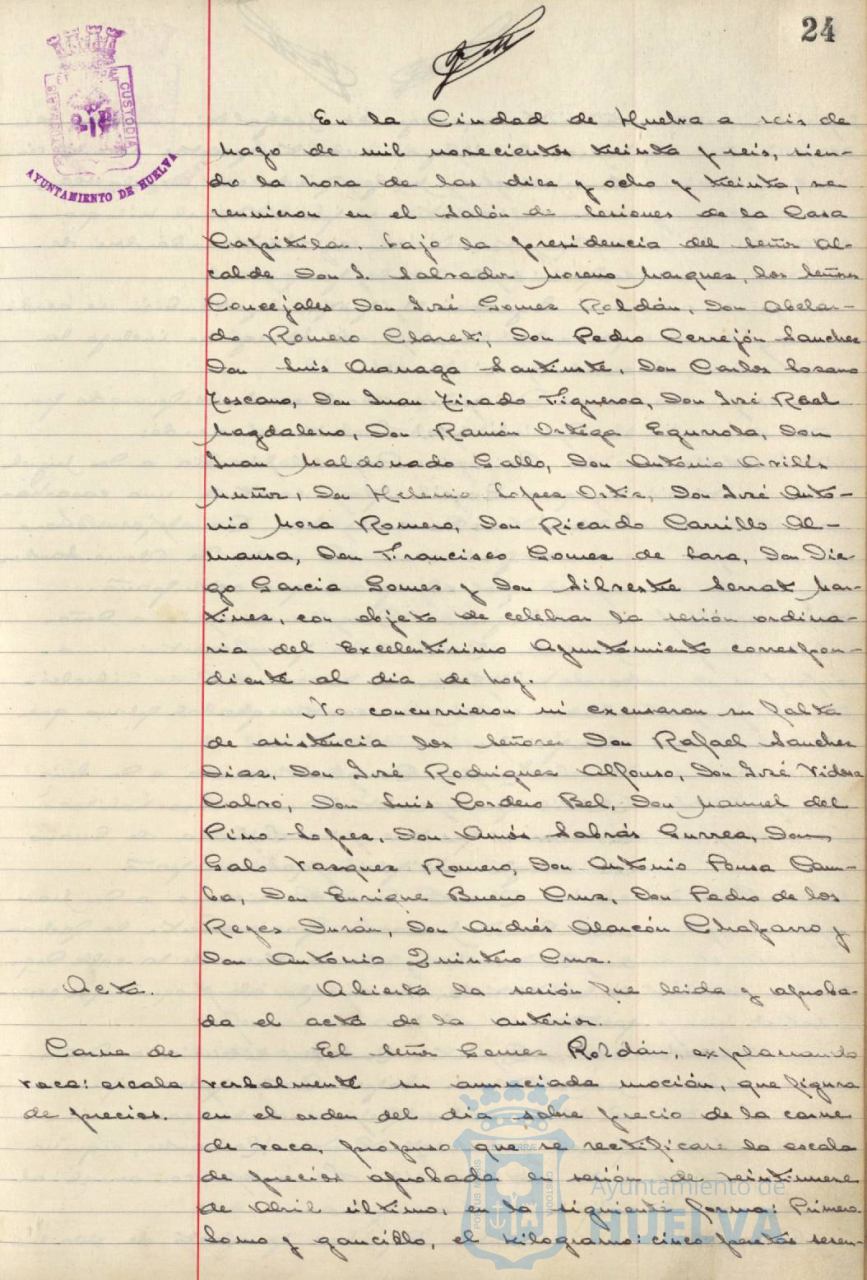 24
PORTUS MARIS
CUSTODIA
AYUNTAMIENTO DE HUELVA
En la Ciudad de Huelva a seis de
Mayo de mil novecientos treinta y seis, sien-
do la hora de las diez y ocho y treinta, se
reunieron en el Salón de Sesiones de la Casa
Capitular, bajo la presidencia del Señor Al-
calde Don S. Salvador Moreno Marquez, los Señores
Concejales Don José Gomez Roldán, Don Abelar-
do Romero Claret, Don Pedro Cerrejón Sanchez
Don Luis Don Carlos Lozano
Toscano, Don Juan Tirado Figueroa, Don José Real
Magdaleno, Don Ramón Ortega Egurrola, Don
Juan Maldonado Gallo, Don Antonio Avilés
Muñoz, Don Helenio Lopez Ortiz, Don José Anto-
nio Mora Romero, Don Ricardo Carrillo Al-
mansa, Don Francisco Gomez de Lara, Don Die-
go Garcia Gomez y Don Silvestre Serrat Mar-
tinez, con objeto de celebrar la sesión ordina-
ria del Excelentísimo Ayuntamiento correspon-
diente al dia de hoy.
No concurrieron ni excusaron su falta
de asistencia los Señores Don Rafael Sanchez
Diaz, Don José Rodriguez Alfonso, Don José Vidosa
Calvo, Don Luis Cordero Bel, Don Manuel del
Pino Lopez, Don Amós Sabrás Gurrea, Don
Galo Vazquez Romero, Don Antonio Pousa Cam-
ba, Don Enrique Bueno Cruz, Don Pedro de los
Reyes Durán, Don Andrés Alarcón Chaparro y
Don Antonio Quintero Cruz.
Acta.
Abierta la sesión fue leida y aproba-
da el acta de la anterior.
Carne de
vaca: escala
de precios.
El Señor Gomez Roldán, explanando
verbalmente su anunciada moción, que figura
en el orden del dia sobre precio de la carne
de vaca, propuso que se rectificara la escala
de precios aprobada en sesión de veintinueve
de Abril último, en la siguiente forma: Primero
Lomo y gancillo, el kilogramo: cinco pesetas seten-
Ayuntamiento de
HUELVA